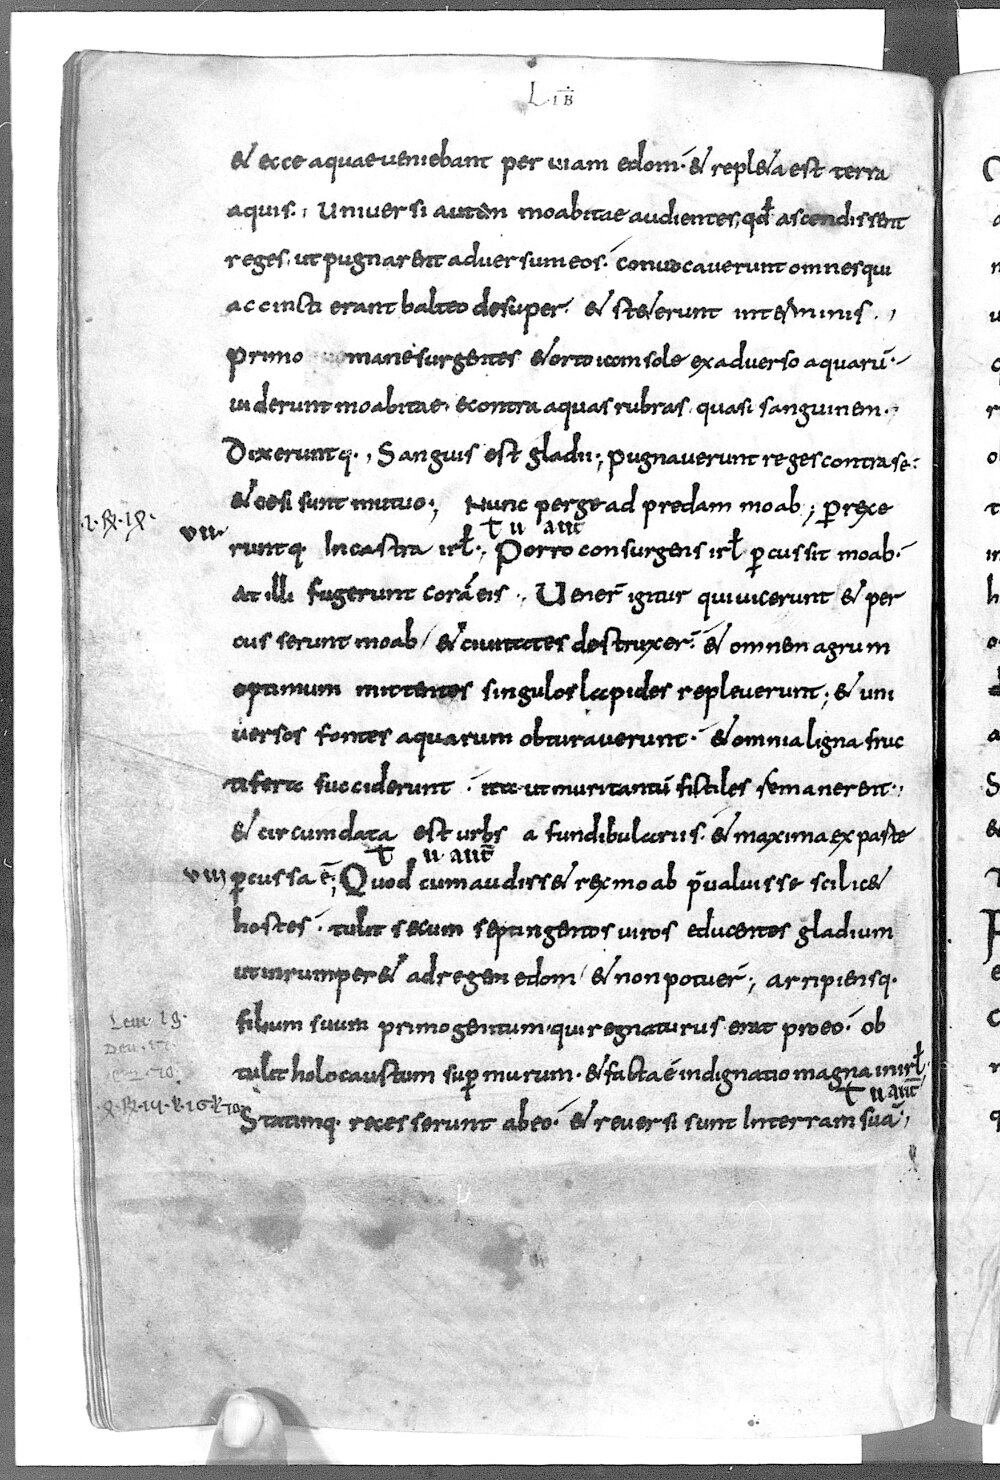 LIB̄
& ecce aquae veniebant per viam edom· & repl&a est terra
aquis·; Universi autem moabitae audientes, qđ ascendissent
reges, ut pugnarent adversum eos· convocaverunt omnes qui
accincti erant balteo desuper· & st&erunt in terminis·,
primo mane surgentes & orto iam sole ex adverso aquarū·
viderunt moabitae e contra aquas rubras quasi sanguinem·,
Dixeruntq·, Sanguis est gladii·; pugnaverunt reges contra se·
& cesi sunt mutuo·; Nunc perge ad predam moab·; ꝑrexe
vii·
runtq· In castra irł·; Porro consurgens irł ꝑcussit moab·
At illi fugerunt corā eis·, Uener̄ igitur qui vicerunt & per
cusserunt moab/ & civitates destruxer̄· & omnem agrum
optimum mittentes singulos lapides repleverunt·; & uni
versos fontes aquarum obturaverunt· & omnia ligna fruc
tifera succiderunt· ita ut muri tantū fictiles remanerent·,
& circumdata est urbs a fundibulariis· & maxima ex parte
viii ꝑcussa ē·; Quod cum audiss& rex moab p̄valuisse scilic&
hostes· tulit secum septingentos viros educentes gladium
ut inrumper& ad regem edom/ & non potuer̄·; arripiensq·
filium suum primogenitum· qui regnaturus erat pro eo· ob
tulit holocaustum suꝑ murum· & facta ē indignatio magna in irł·
Statimq· recesserunt ab eo· & reversi sunt In terram suā·,